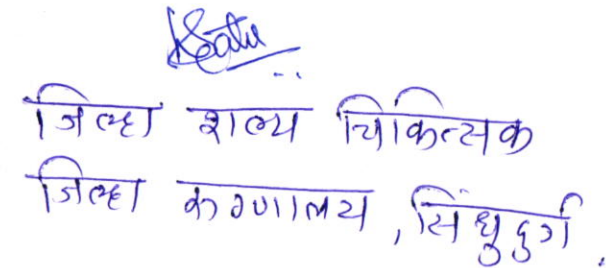 जिल्हा शल्य चिकित्सक
जिल्हा रुग्णालय, सिंधुदुर्ग.